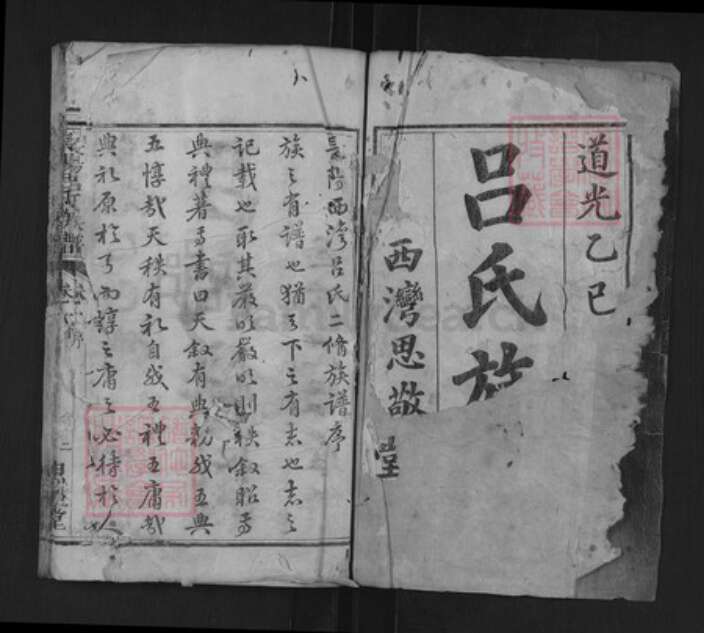 道光乙巳
呂氏族
西灣思敬堂
西灣呂氏二脩族譜序
族之有譜也猶天下之有志也志之
記載也取其嚴以嚴以則秩叙昭焉
典禮著焉書曰天叙有典勑我五典
五惇哉天秩有礼自我五禮五庸哉
典礼原於而惇之庸之必待於人
二
思敬堂